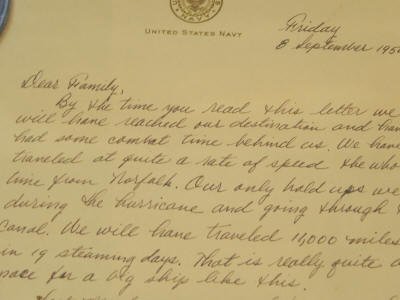 UNITED STATES NAVY
Friday
8 September 195
Dear Family,
By the time you read this letter we
will have reached our destination and hav
had some combat time behind us. We have
traveled at quite a rate of speed the who
time from Norfolk. Our only hold ups we
during the hurricane and going through t
Canal. We will have traveled 11,000 miles
in 19 steaming days. That is really quite a
pace for a big ship like this.